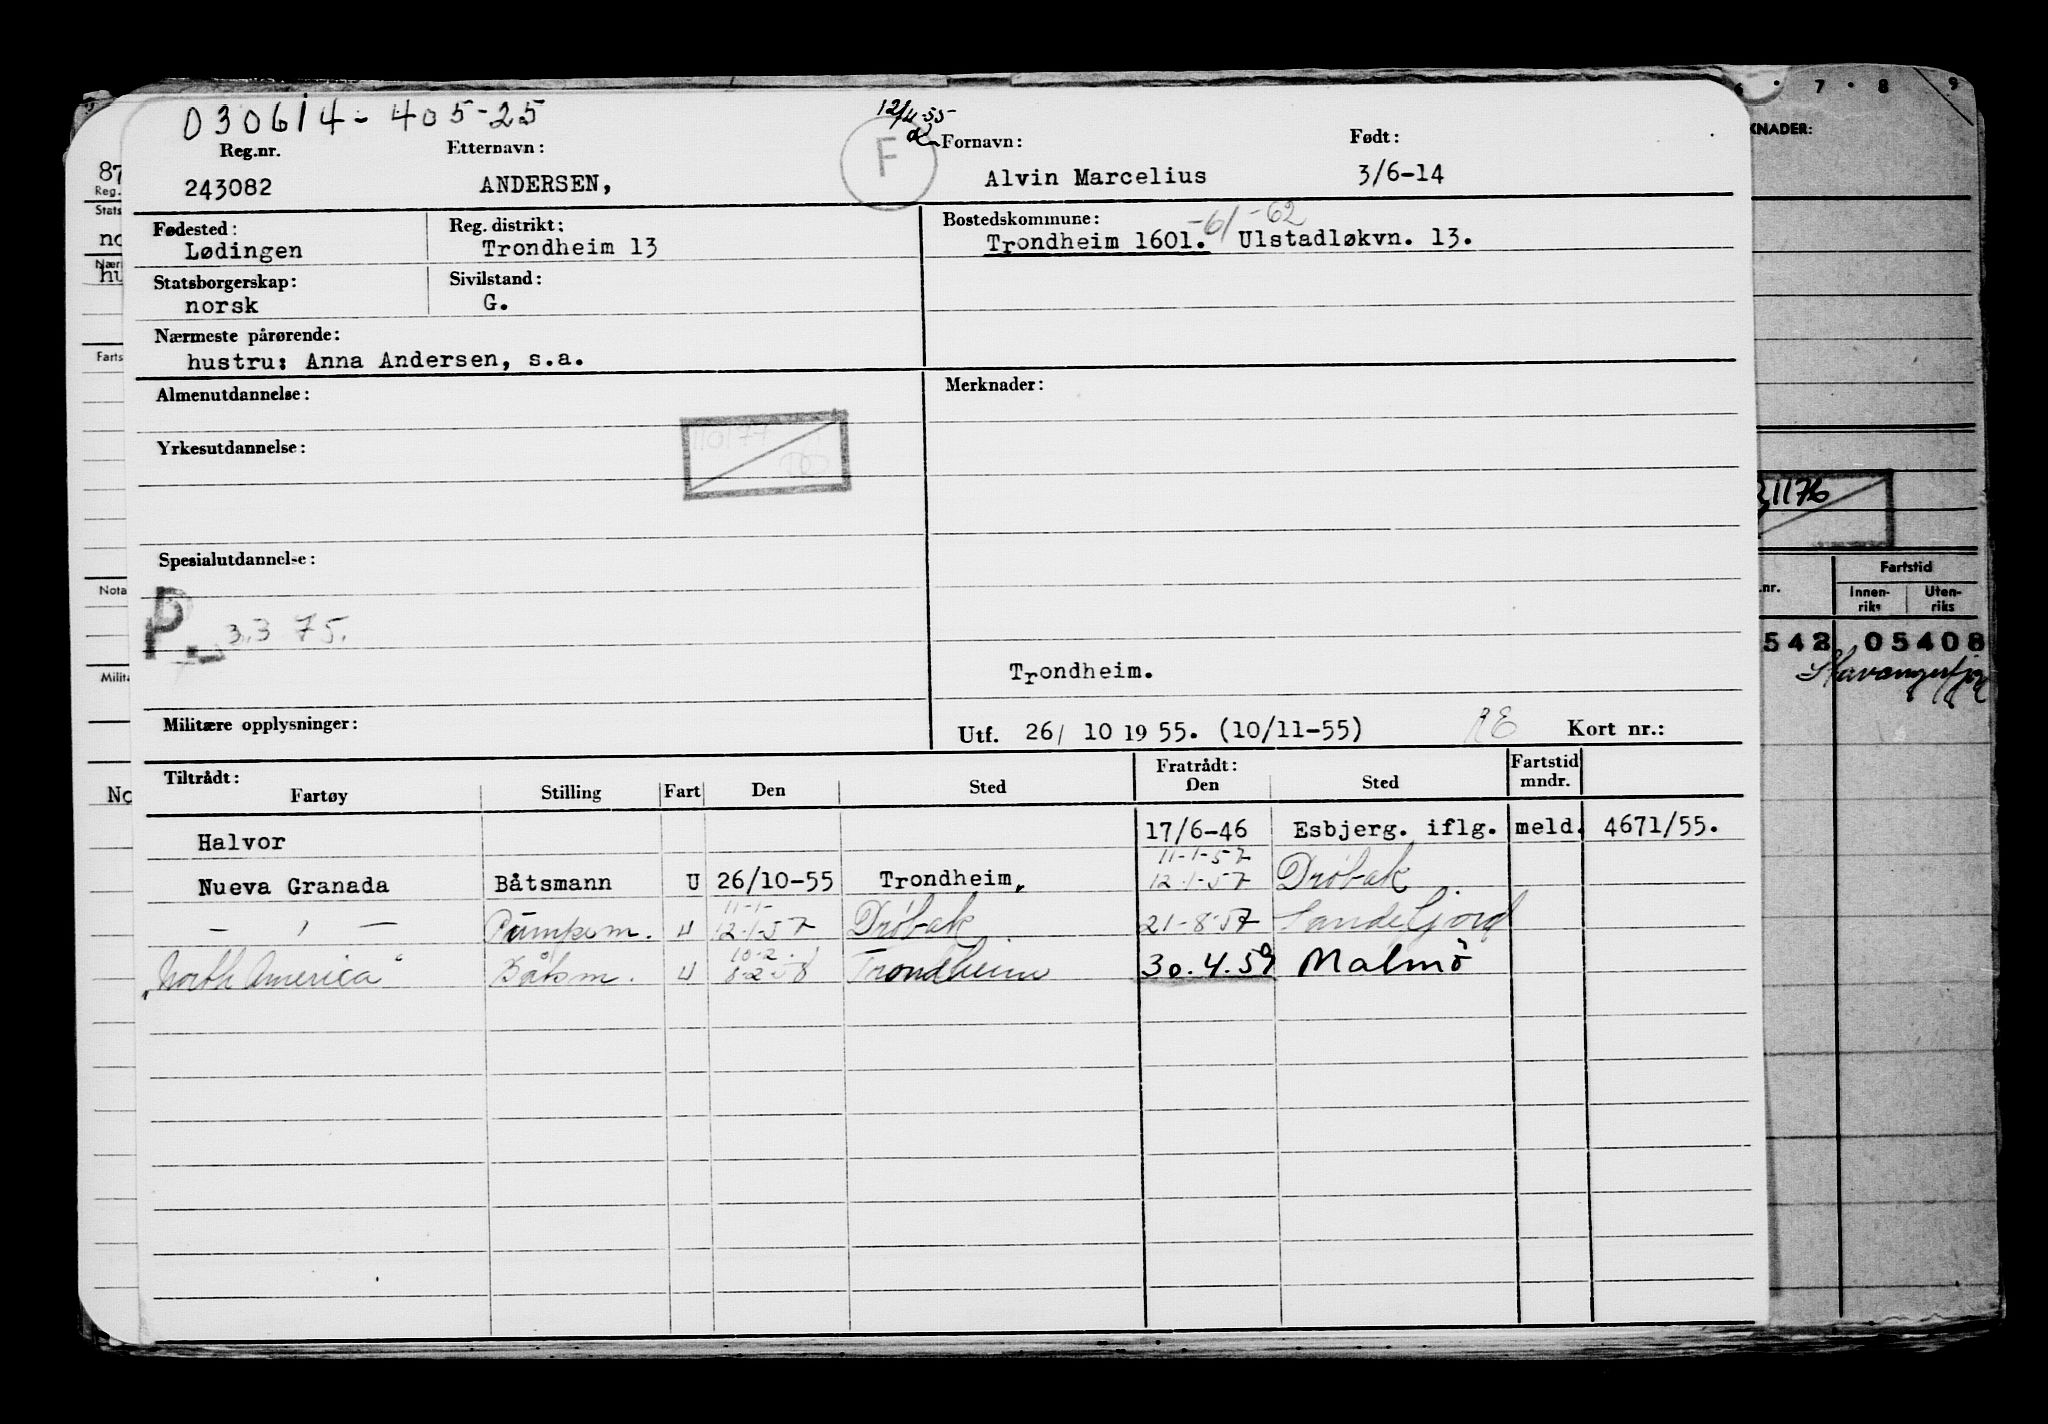 030614-405-25 12/4-55
Reg.nr. Etternavn: F Fornavn: Født:
243082 ANDERSEN, Alvin Marcelius 3/6-14
Fødested: Reg. distrikt: Bostedskommune: -61 -62
Lødingen Trondheim 13 Trondheim 1601. Ulstadløkvn. 13.
Statsborgerskap: Sivilstand:
norsk G.
Nærmeste pårørende:
hustru: Anna Andersen, s.a.
Almenutdannelse: Merknader:
Yrkesutdannelse:
Spesialutdannelse:
P. 3.3 75.
Trondheim.
Militære opplysninger: Utf. 26/ 10 19 55. (10/11-55) Kort nr.:
Tiltrådt: Fratrådt: Fartstid
Fartøy Stilling Fart Den Sted Den Sted mndr.
Halvor 17/6-46 Esbjerg. iflg. meld. 4671/55.
11-1-57
Nueva Granada Båtsmann U 26/10-55 Trondheim, 12-1-57 Drøbak
11-1-
— " — Pumpem. U 12-1-57 Drøbak 21-8-57 Sandefjord
10-2-
"North America" Båtsm. U 8-2-58 Trondheim 30.4.59 Malmö
87
Reg.
Stats
no
Nær
hu
Farts
Nota
Milit
No
6 • 7 • 8 9
KNADER:
1176
.nr. Fartstid
Innen-
riks Uten-
riks
542 05408
Stavangerfj